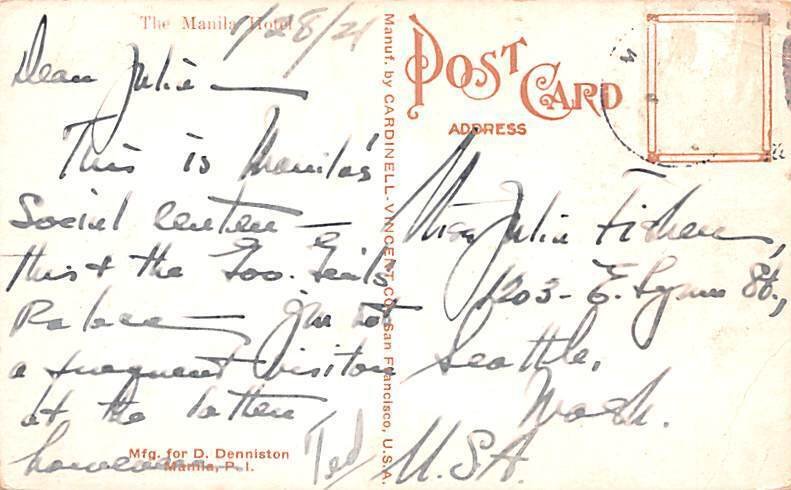 The Manila Hotel
1/28/21
Dear Julie —
This is Manila's
Social Center —
this + the Gov. Gen'ls
Palace — I'm not
a frequent visitor
at the latter
however — Ted
Mfg. for D. Denniston
Manila, P. I.
Manuf. by CARDINELL-VINCENT CO., San Francisco, U.S.A.
POST CARD
ADDRESS
Miss Julie Fisher,
1203 - E. Lynn St.,
Seattle,
Wash.
U.S.A.